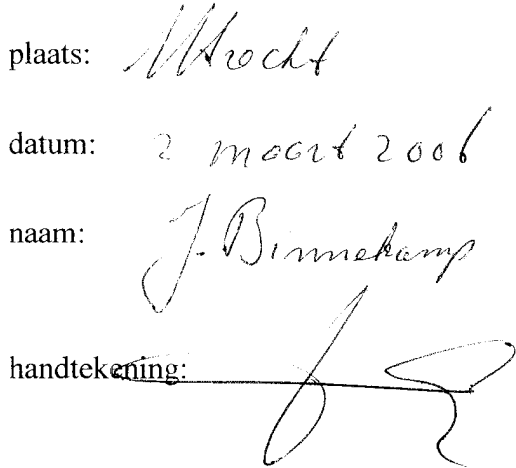 plaats: Utrecht
datum: 2 maart 2006
naam: J. Binnekamp
handtekening: